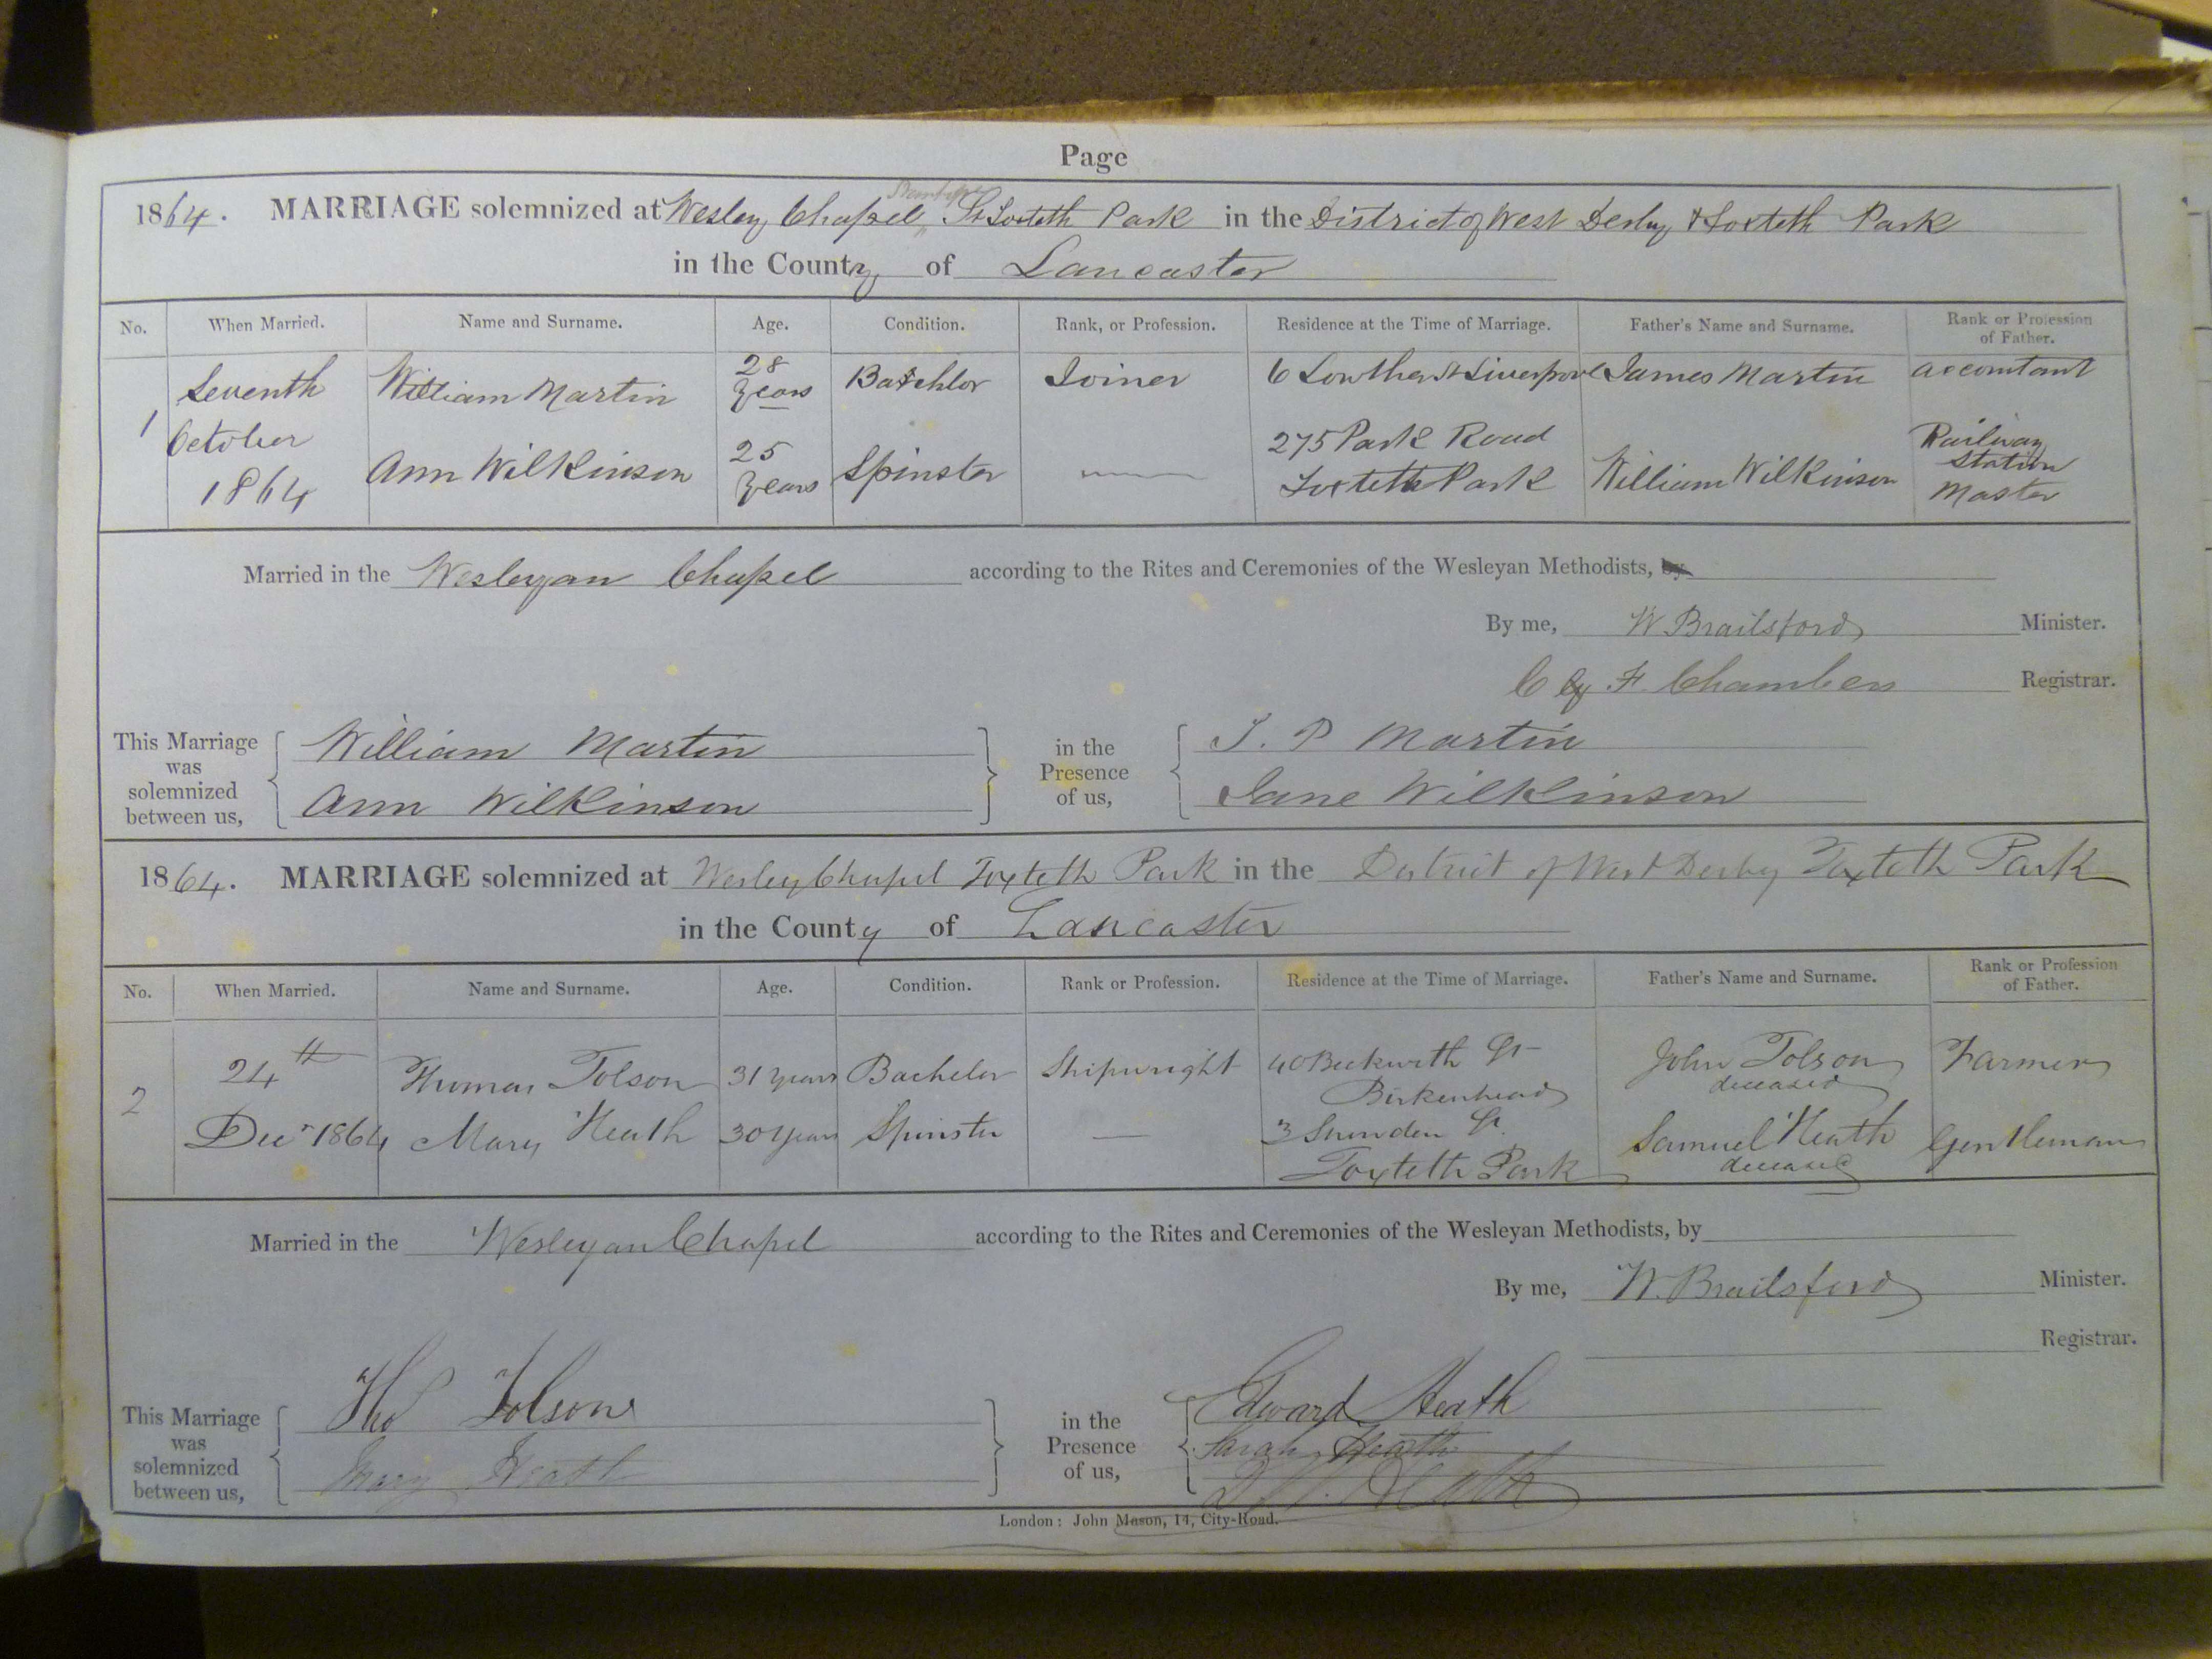 Page
1864. MARRIAGE solemnized at Wesley Chapel St Toxteth Park in the District of West Derby & Toxteth Park
in the County of Lancaster
No. When Married. Name and Surname. Age. Condition. Rank, or Profession. Residence at the Time of Marriage. Father's Name and Surname. Rank or Profession of Father.
1 Seventh October 1864 William Martin 28 years Batchlor Joiner 6 Lowther St Liverpool James Martin accountant
Ann Wilkinson 25 years Spinster 275 Park Road Toxteth Park William Wilkinson Railway Station Master
Married in the Wesleyan Chapel according to the Rites and Ceremonies of the Wesleyan Methodists, by
By me, W Brailsford Minister.
F. Chambers Registrar.
This Marriage was solemnized between us, William Martin in the Presence of us, J. P Martin
Ann Wilkinson Jane Wilkinson
1864. MARRIAGE solemnized at Wesley Chapel Toxteth Park in the District of West Derby Toxteth Park
in the County of Lancaster
No. When Married. Name and Surname. Age. Condition. Rank or Profession. Residence at the Time of Marriage. Father's Name and Surname. Rank or Profession of Father.
2 24th Decr 1864 Thomas Tolson 31 years Bachelor Shipwright 40 Beckwith St Birkenhead John Tolson deceased Farmer
Mary Heath 30 years Spinster 3 Snowden St. Toxteth Park Samuel Heath deceased Gentleman
Married in the Wesleyan Chapel according to the Rites and Ceremonies of the Wesleyan Methodists, by
By me, W. Brailsford Minister.
Registrar.
This Marriage was solemnized between us, Thos Tolson in the Presence of us, Edward Heath
Mary Heath Sarah Heath
Heath
London: John Mason, 14, City-Road.